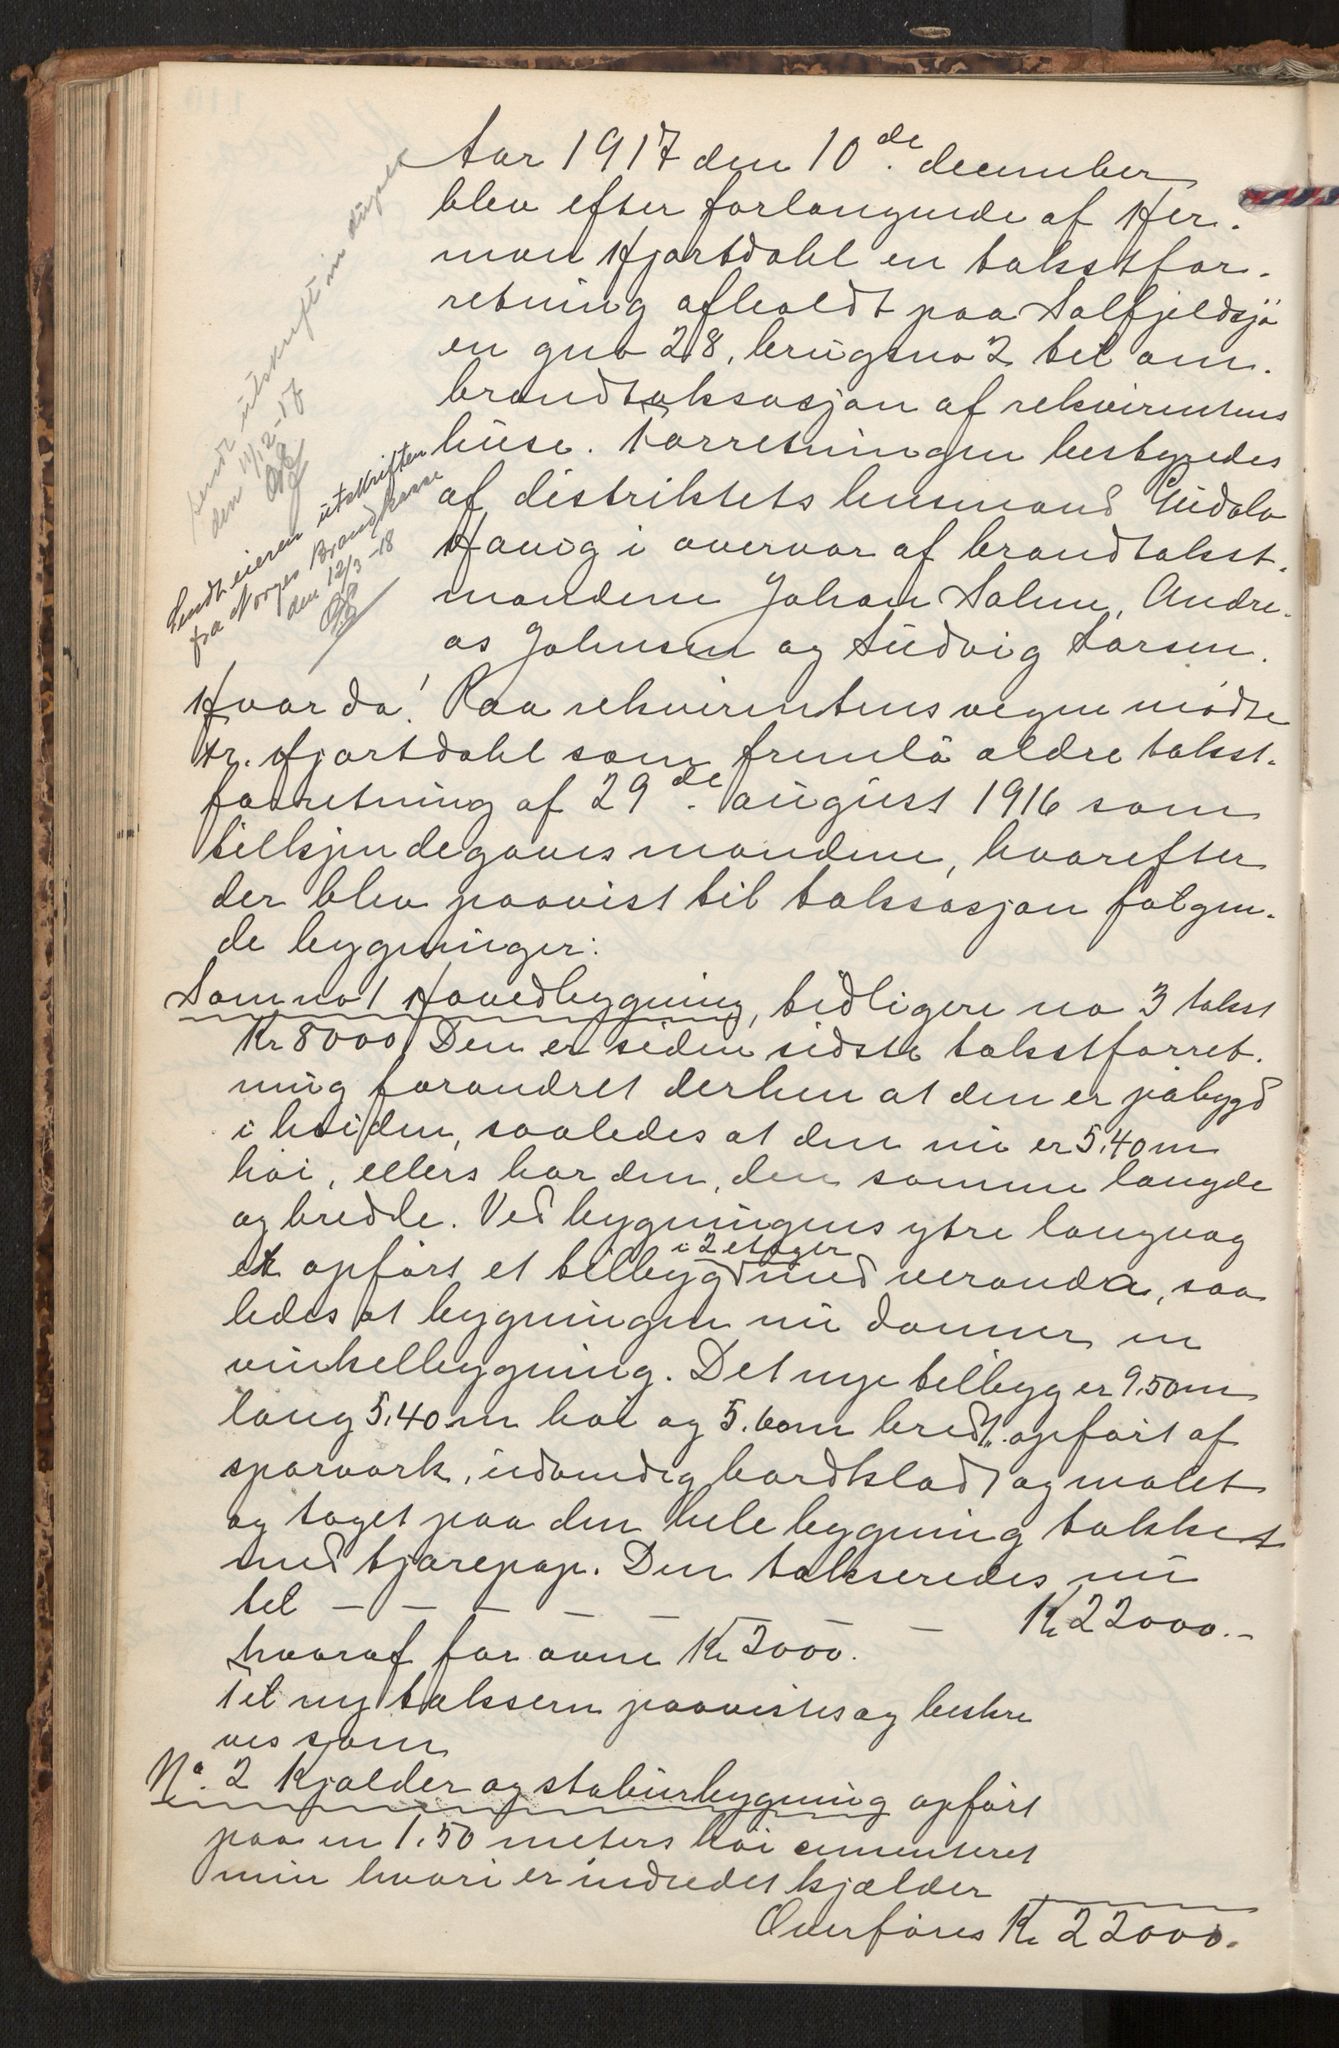 Aar 1917 den 10de december
blev efter forlangende af Her-
man Hjartdahl en takstfor-
retning afholdt paa Salfjeldsjö
en gno 28, brugsno 2 til om-
brandtaksasjon af rekvirentens
huse. Forretningen bestyredes
af distriktets lensmand Gudolv
Havig i overvær af brandtakst-
mændene Johan Salen, Andre-
as Johnsen og Ludvig Larsen.
sendt utskrift in duplo
den 11/12-17
Sendt eieren utskriften
fra Norges Brandkasse
den 12/3-18
Hvor da! Paa rekvirentens vegne mødte
Hr. Hjartdahl som fremlå ældre takst-
forretning af 29de august 1916 som
tilkjendegaves mændene, hvorefter
der blev paavist til taksasjon følgen-
de bygninger:
Som no 1 Hovedbygning, tidligere no 3 takst
Kr 8000. Den er siden sidste takstforret-
ning forandret derhen at den er påbygd
i høiden, saaledes at den nu er 5.40 m
høi, ellers har den, den samme længde
og bredde. Ved bygningens ytre langvæg
er opført et tilbygd i 2 etager med veranda, saa
ledes at bygningen nu danner en
vinkelbygning. Det nye tilbygg er 9.50 m
lang 5.40 m høi og 5.60 m bredt opført af
sparværk, udvendig bordklædt og malet
og taget paa den hele bygning tækket
med tjærepap. Den takseredes nu
til — — — — — — — Kr 22000.-
hvoraf for ovne Kr 2000.
Til ny taksern paavistes og beskre
ves som
No. 2 Kjælder og staburbygning opført
paa en 1.50 meters høi cementeret
mur hvori er indredet kjælder
Overføres Kr 22000.